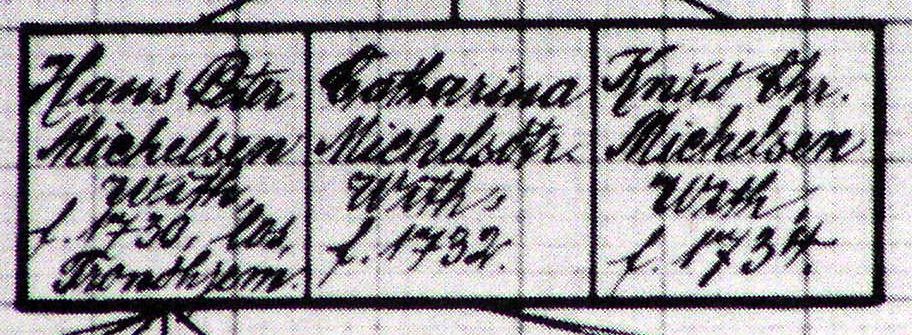 Hans Peter
Michelsen
With,
f. 1730, bos.
Trondhjem.
Catharina
Michelsdtr.
With,
f. 1732.
Knud Chr.
Michelsen
With,
f. 1734.